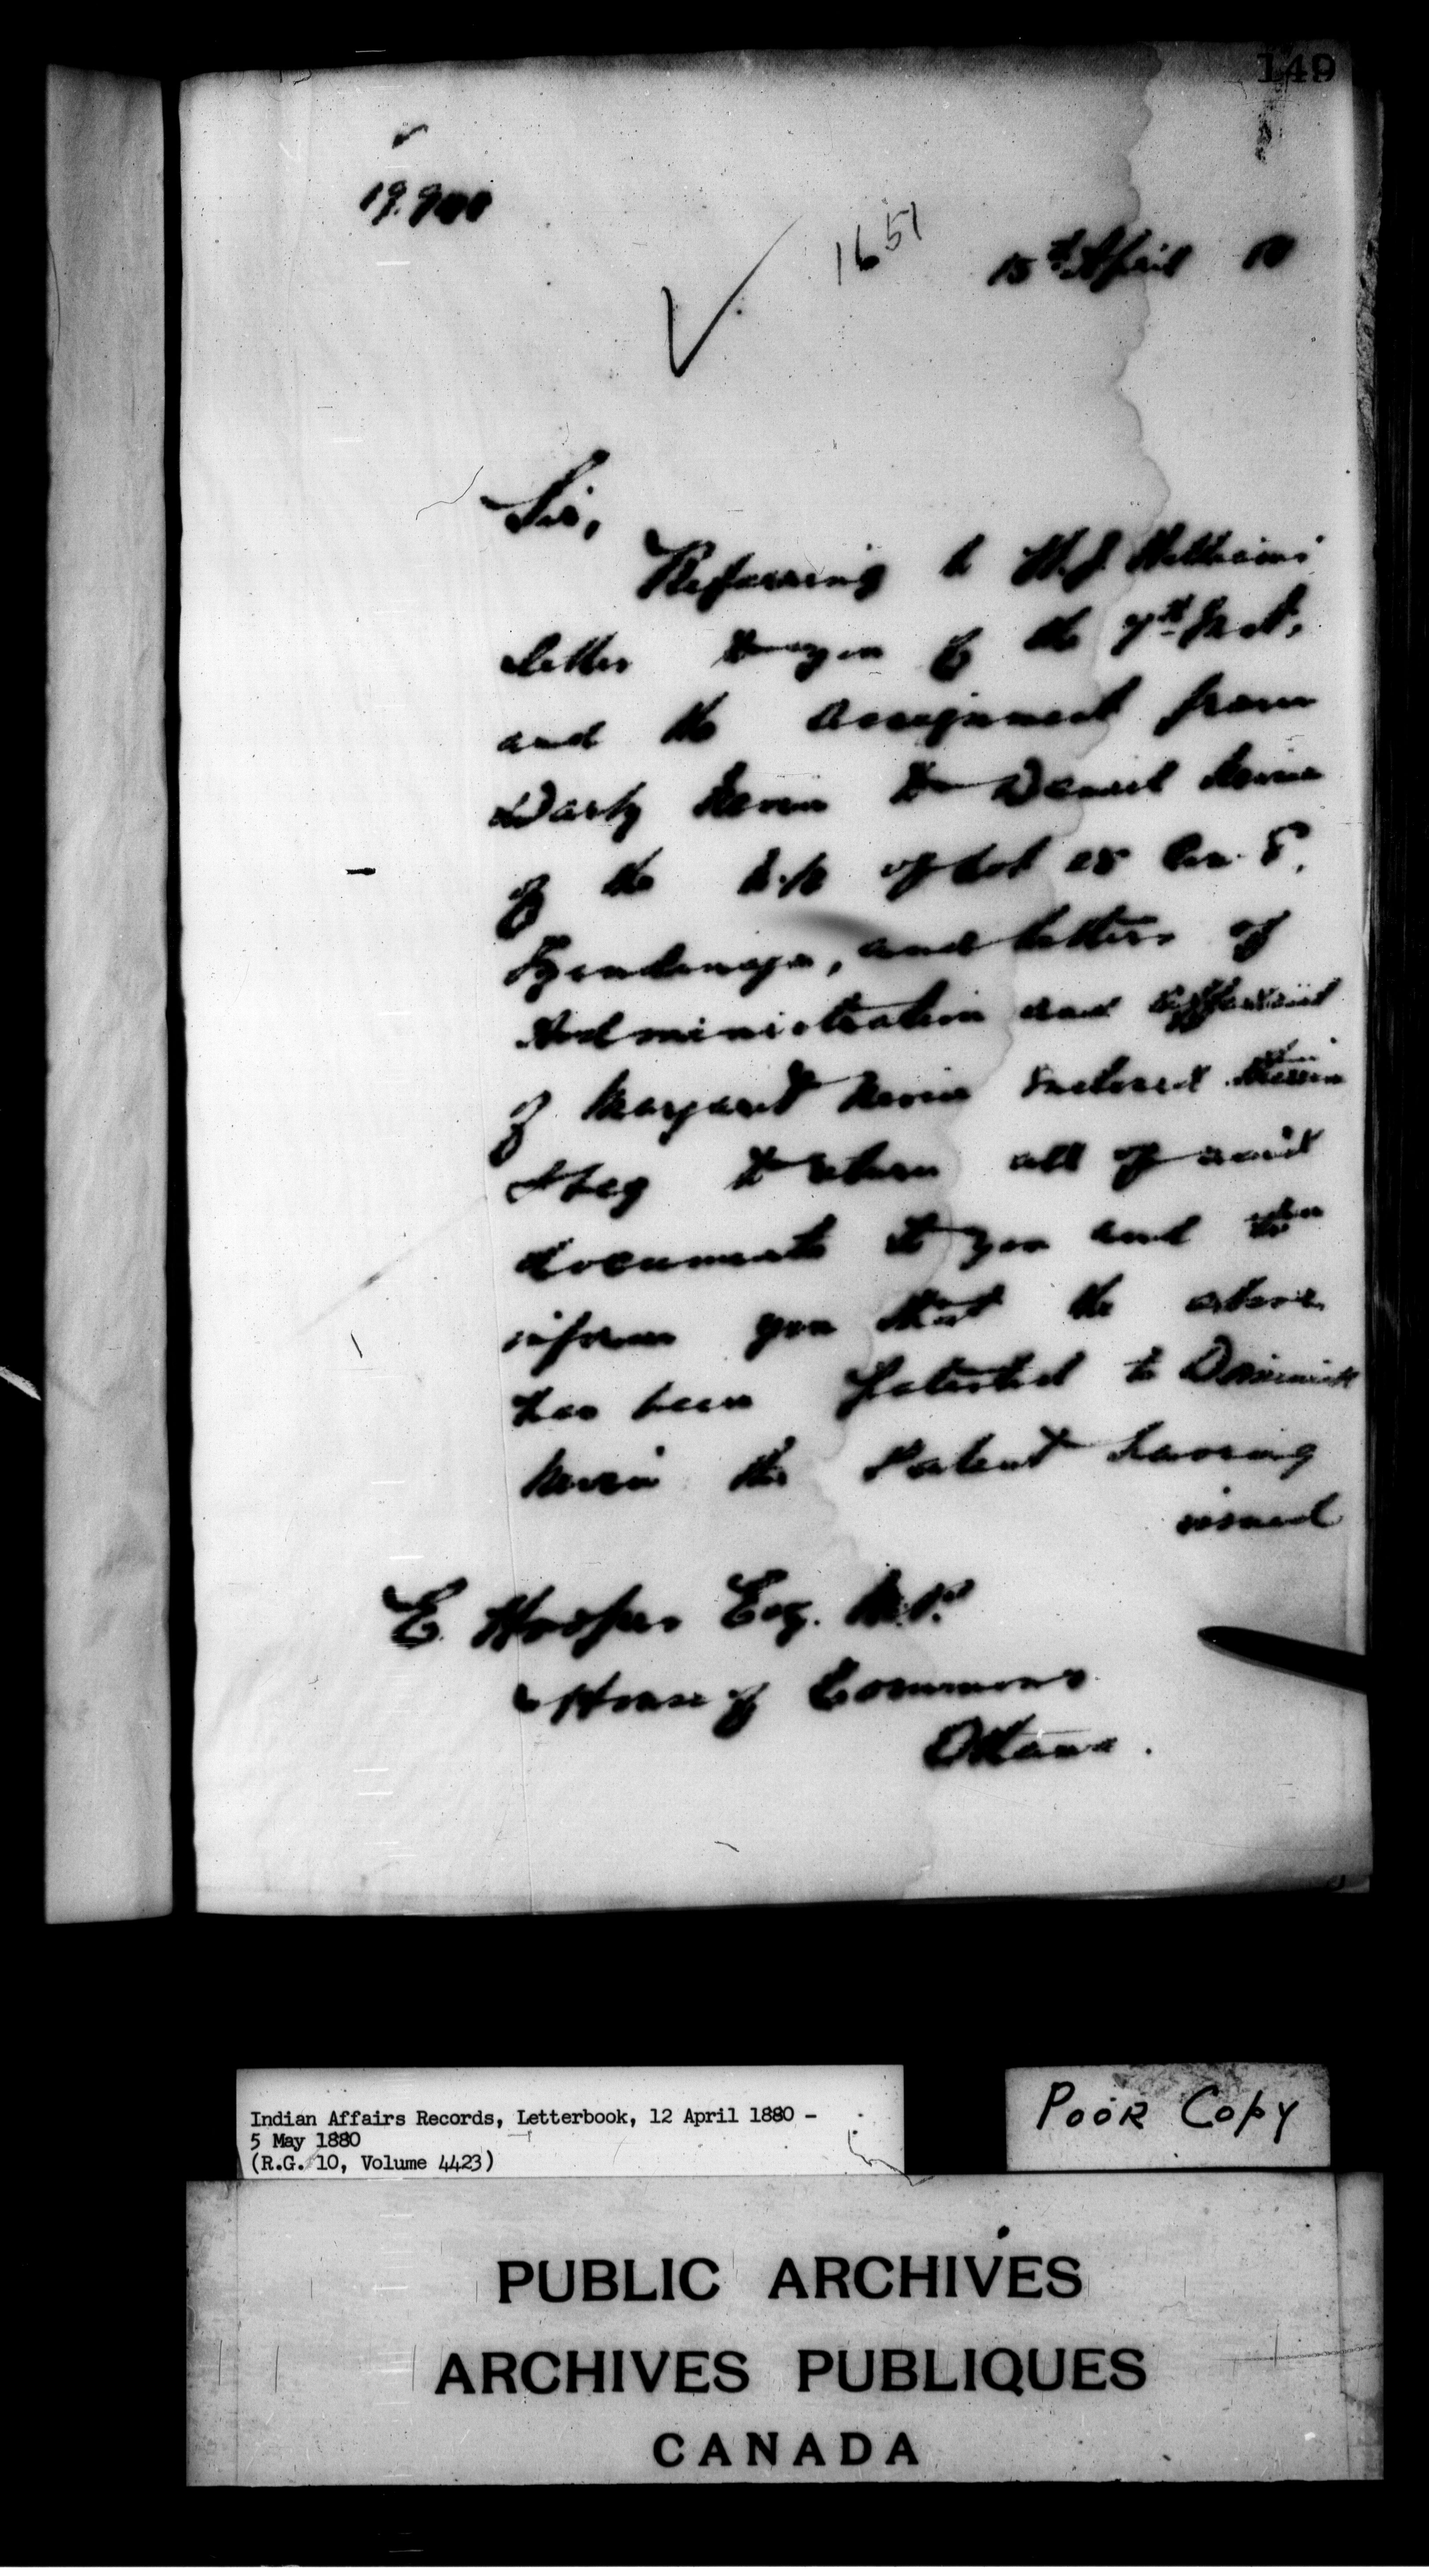 149
1651
15th April 80
Sir,
Referring to W. J.
letter to you of the 7th Inst,
and the assignment from
to Daniel
of the of Lot 25 Con. 5,
Tyendinaga, and letters of
Administration and affidavit
of Margaret enclosed
I beg to return all of said
documents to you and to
inform you that the above
has been patented to Dominick
the Patent having
issued
E. Hooper Esq. M.P.
House of Commons
Ottawa.
Indian Affairs Records, Letterbook, 12 April 1880 -
5 May 1880
(R.G. 10, Volume 4423)
Poor Copy
PUBLIC ARCHIVES
ARCHIVES PUBLIQUES
CANADA